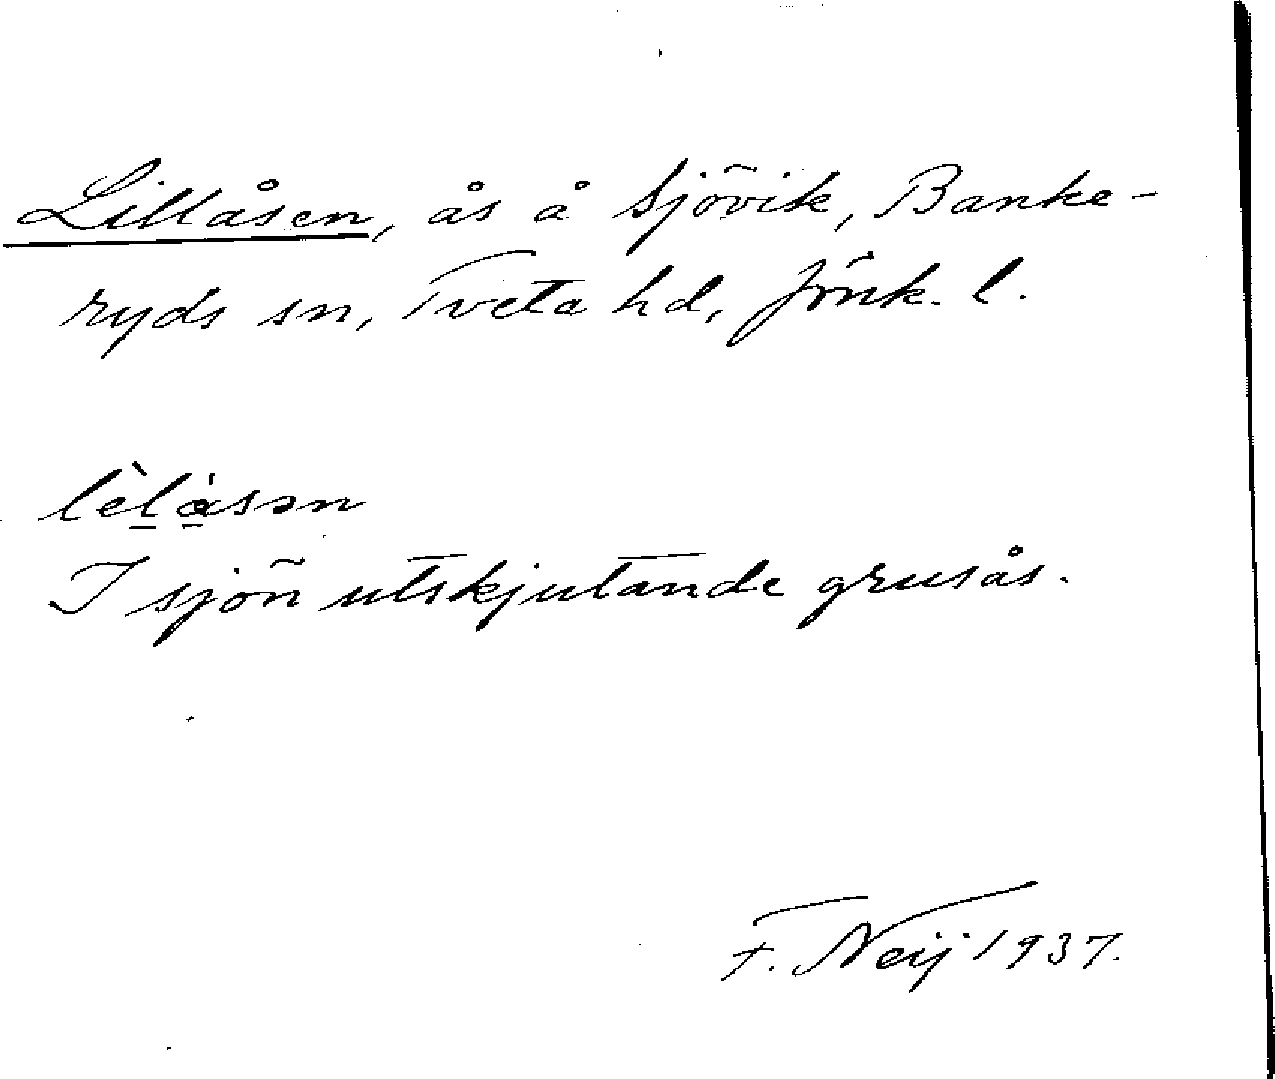 Lillåsen, ås å Sjövik, Banke-
ryds sn, Tveta hd, Jönk. l.
lèlåsən
I sjön utskjutande grusås.
F. Neij 1937.